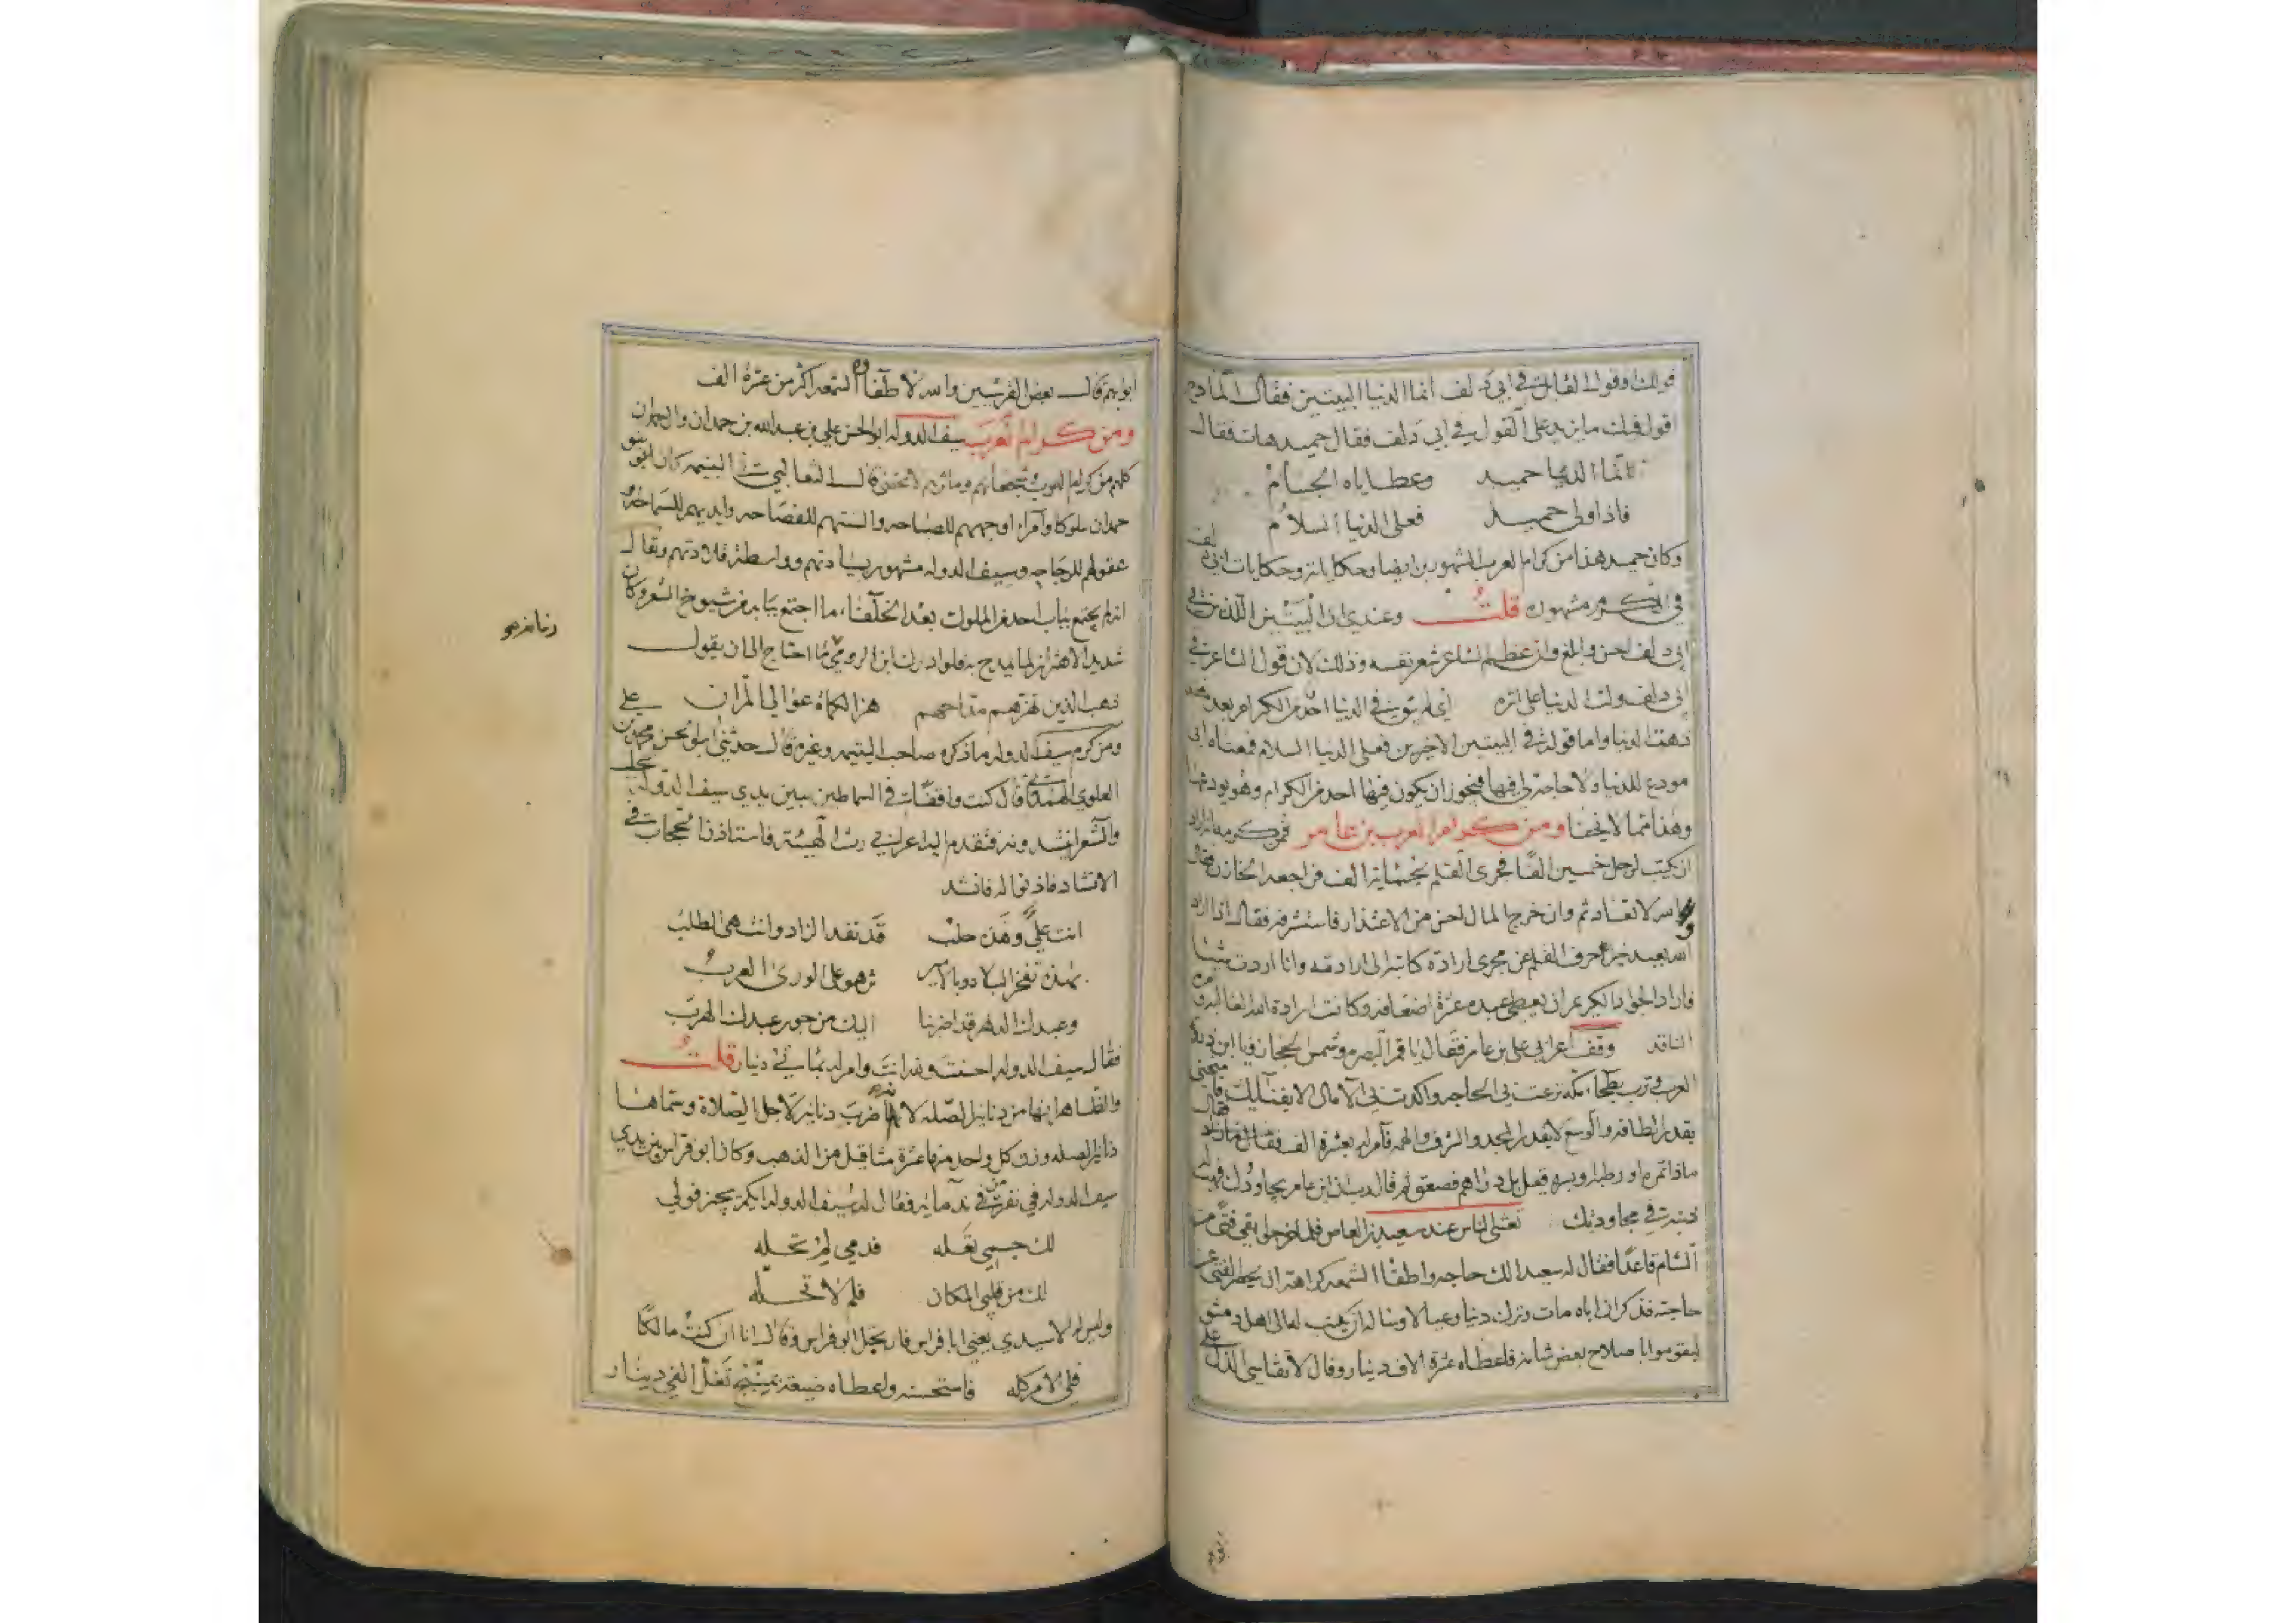 قولك وقول القايل في ابي دلف انما الدنيا البيتين فقال المادح
اقول فيك ما يزيد على القول في ابي دلف فقال حميد هات فقال
انما الدنيا حميد وعطاياه الجسام
فاذا ولى حميد فعلى الدنيا السلام
وكان حميد هذا من كرام العرب المشهورين ايضا وحكاياته وحكايات ابي دلف
في الكرم مشهورة قلت وعندي ان البيتين اللذين في
ابي دلف احسن وابلغ وان عظم الشاعر شعر نفسه وذلك لان قول الشاعر في
ابي دلف ولت الدنيا على اثره اي لم يبق في الدنيا احد من الكرام بعده
ذهبت الدنيا واما قوله في البيتين الاخيرين فعلى الدنيا السلام فمعناه اني
مودع للدنيا ولا حاجة لي فيها فيجوز ان يكون فيها احد من الكرام وهو يودعها
وهذا مما لا يخفا ومن كرام العرب بن عامر فمن كرمه انه اراد
ان يكتب لرجل خمسين الفا فجرى القلم بخمسماية الف فراجعه الخازن فقال
والله لانفاذه وان خرج المال احسن من الاعتذار فاستشرفه فقال اذا اراد
الله بعبد خيرا حرف القلم عن مجرى ارادة كاتبه الى ارادته وانا اردت شيئا
فاراد الجواد الكريم ان يعطي عبده عشرة اضعافه وكانت ارادة الله الغالبة وامره
النافذ وقف اعرابي على بن عامر فقال يا قمر البصرة وشمس الحجاز ويا ابن ذروة
العرب وترب بطحاء مكة نزعت بي الحاجة واكدت بي الآمال الا بفنائك فامنحني
بقدر الطاقة والوسع لا بقدر المجد والشرف والهمة فامر له بعشرة الف فقال
ماذا تمرة او رطبة او بسرة قيل بل دراهم فصعق ثم قال رب ان ابن عامر يجاودك فهب له
ذنبه في مجاودتك تعشى الناس عند سعيد بن العاص فلما خرجوا بقي فتى من
الشام قاعدا فقال له سعيد الك حاجة واطفا الشمعة كراهة ان يحصر الفتى عن
حاجته فذكر ان اباه مات وترك دينا وعيالا وساله ان يكتب له الى اهل دمشق
ليقوموا باصلاح بعض شانه فاعطاه عشرة الاف دينار وقال لا تقاسي الذل على
ابوابهم قال بعض القرشيين والله لاطفاوه الشمعة اكثر من عشرة الف
ومن كرام العرب سيف الدولة ابو الحسن علي بن عبد الله بن حمدان وال حمدان
كلهم من كرام العرب وشجعانهم ومآثرهم لا تخفى قال الثعالبي في اليتيمة كان بنو
حمدان ملوكا وامراء اوجههم للصباحة والسنتهم للفصاحة وايديهم للسماحة
وعقولهم للرجاحة وسيف الدولة مشهور بسيادتهم وواسطة قلادتهم ويقال
انه لم يجتمع بباب احد من الملوك بعد الخلفاء ما اجتمع ببابه من شيوخ الشعر وكان
شديد الاهتزاز لما يمدح به فلو ادرك ابن الرومي ما احتاج الى ان يقول
ذهب الذين تهزهم مداحهم هز الكماة عوالي المران
ومن كرم سيف الدولة ما ذكره صاحب اليتيمة وغيره قال حدثني ابو الحسن محمد بن علي
العلوي الهمداني قال كنت واقفا في السماطين بين يدي سيف الدولة بحلب
والشعرا ينشدونه فتقدم اليه اعرابي رث الهيئة فاستاذن الحجاب في
الانشاد فاذنوا له فانشد
انت علي وهذه حلب قد نفد الزاد وانتهى الطلب
بهذه تفخر البلاد وبالامير تزهو على الورى العرب
وعبدك الدهر قد اضر بنا اليك من جور عبدك الهرب
فقال سيف الدولة احسنت ولله انت وامر له بمائتي دينار قلت
والظاهر انها من دنانير الصلة لانه ضرب دنانير لاجل الصلاة وسماها
دنانير الصلة وزن كل واحد منها عشرة مثاقيل من الذهب وكان ابو فراس بين يدي
سيف الدولة في نفر من ندمائه فقال لهم سيف الدولة ايكم يجيز قولي
لك جسمي تعله فدمي لم تحله
لك من قلبي المكان فلم لا تحله
وليس له الا سيدي يعني ابا فراس فارتجل ابو فراس وقال انا ان كنت مالكا
فلي الامر كله فاستحسنه واعطاه ضيعة بمنبج تغل الفي دينار